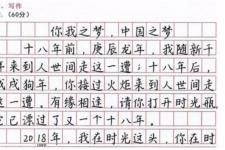 、写作
(60分)
你我之梦,中国之梦
十八年前,庚辰龙年,我随新千
年来到人世间走这一遭;十八年后,
戊戌狗年,你接过火炬来到人世间走
这一遭,有缘相逢,请你打开时光瓶
它已漂过了又一个十八年。
2018年,我在时光这头,你在时